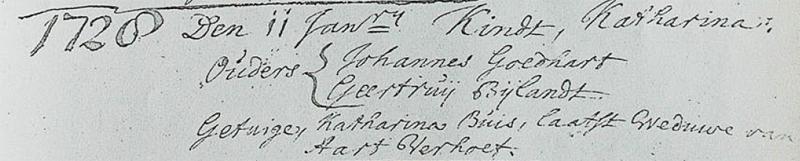 1728 Den 11 Janry Kindt, Katharina.
Ouders { Johannes Goedhart
Geertruÿ Bÿlandt
Getuige, Katharina Buis, laatst Weduwe van
Aart Verhoef.